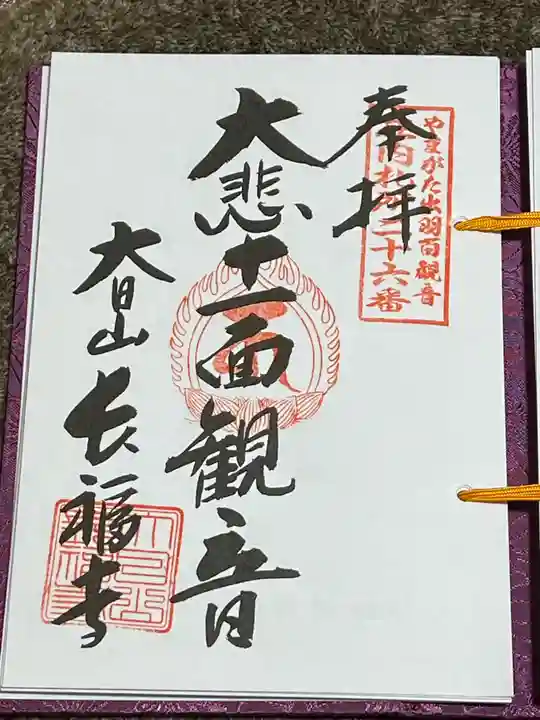 やまがた出羽百観音
庄内札所三十六番
奉拝
大悲十一面観音
大日山
長福寺